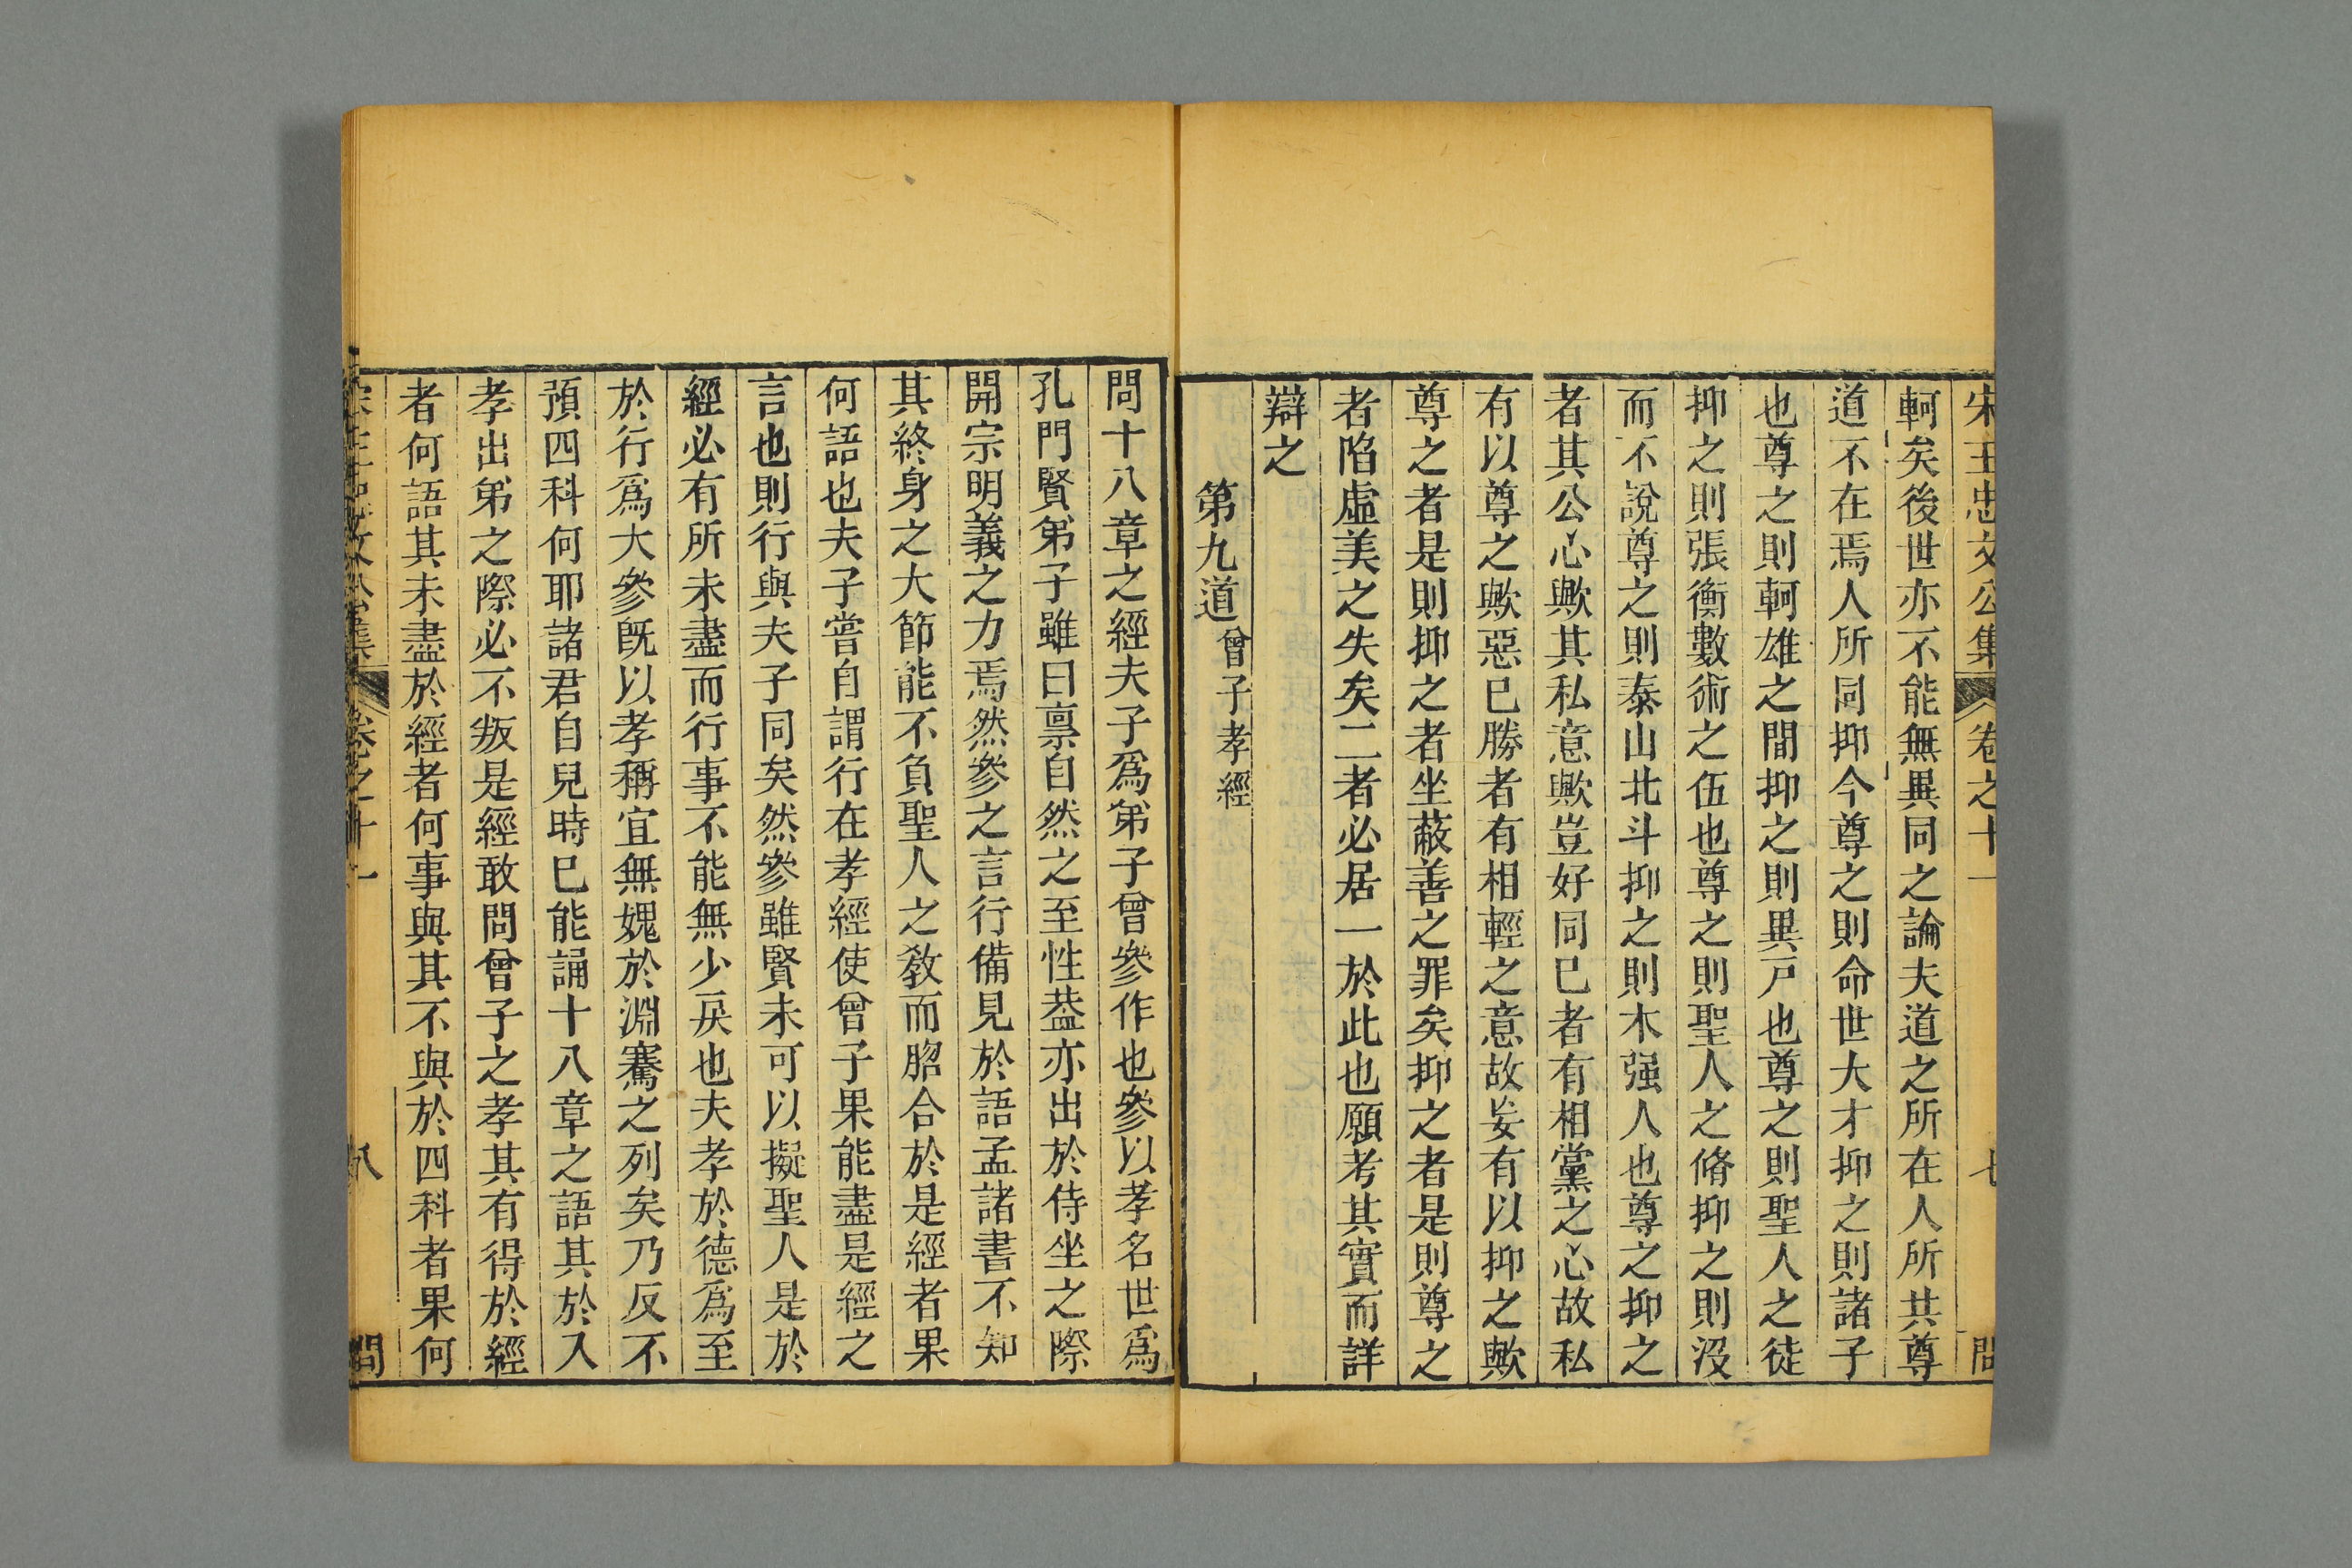 宋王忠文公集 卷之十一 七 問
軻矣後世亦不能無異同之論夫道之所在人所共尊
道不在焉人所同抑今尊之則命世大才抑之則諸子
也尊之則軻雄之間抑之則異戸也尊之則聖人之徒
抑之則張衡數術之伍也尊之則聖人之脩抑之則沒
而不說尊之則泰山北斗抑之則木强人也尊之抑之
者其公心歟其私意歟豈好同已者有相黨之心故私
有以尊之歟惡已勝者有相輕之意故妄有以抑之歟
尊之者是則抑之者坐蔽善之罪矣抑之者是則尊之
者陷虛美之失矣二者必居一於此也願考其實而詳
辯之
第九道 曾子孝經
問十八章之經夫子爲弟子曾參作也參以孝名世爲
孔門賢弟子雖曰禀自然之至性葢亦出於侍坐之際
開宗明義之力焉然參之言行備見於語孟諸書不知
其終身之大節能不負聖人之敎而脗合於是經者果
何語也夫子嘗自謂行在孝經使曾子果能盡是經之
言也則行與夫子同矣然參雖賢未可以擬聖人是於
經必有所未盡而行事不能無少戾也夫孝於德爲至
於行爲大參旣以孝稱宜無媿於淵騫之列矣乃反不
預四科何耶諸君自兒時已能誦十八章之語其於入
孝出弟之際必不叛是經敢問曾子之孝其有得於經
者何語其未盡於經者何事與其不與於四科者果何
宋王忠文公集 卷之十一 八 問